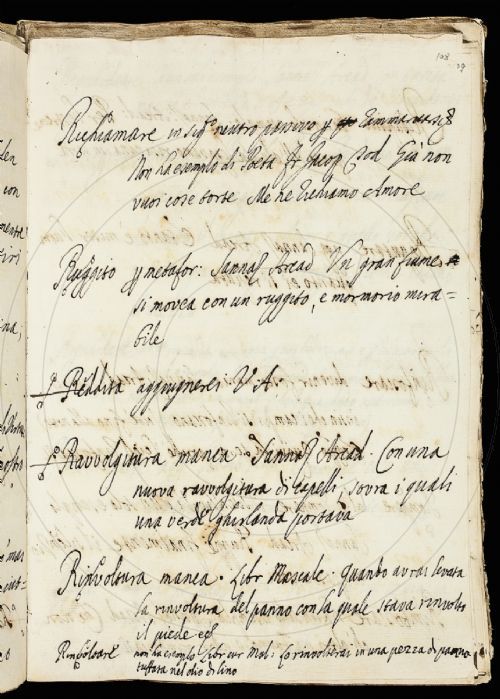 108
29
Richiamare in sigᵒ neutro passivo p
Non ha esempio di Poeta Fr Jacop Tod Già non
vuoi cose torte Me ne richiamo Amore
Ruggito p metafor: Sannaz Arcad Un gran fiume
si movea con un ruggito, e mormorio mira=
bile
Reddita aggiugnerei V A.
Ravvolgitura manca Sannaz Arcad. Con una
nuova ravvolgitura di capelli, sovra i quali
una verde ghirlanda portava
Rinvoltura manca. Libr Mascalc. Quando avrai levata
la rinvoltura del panno con la quale stava rinvolto
il piede
Rinvoltare non ha esemplo Libr cur Mal: Lo rinvolterai in una pezza di panno
tuffata nel olio di lino